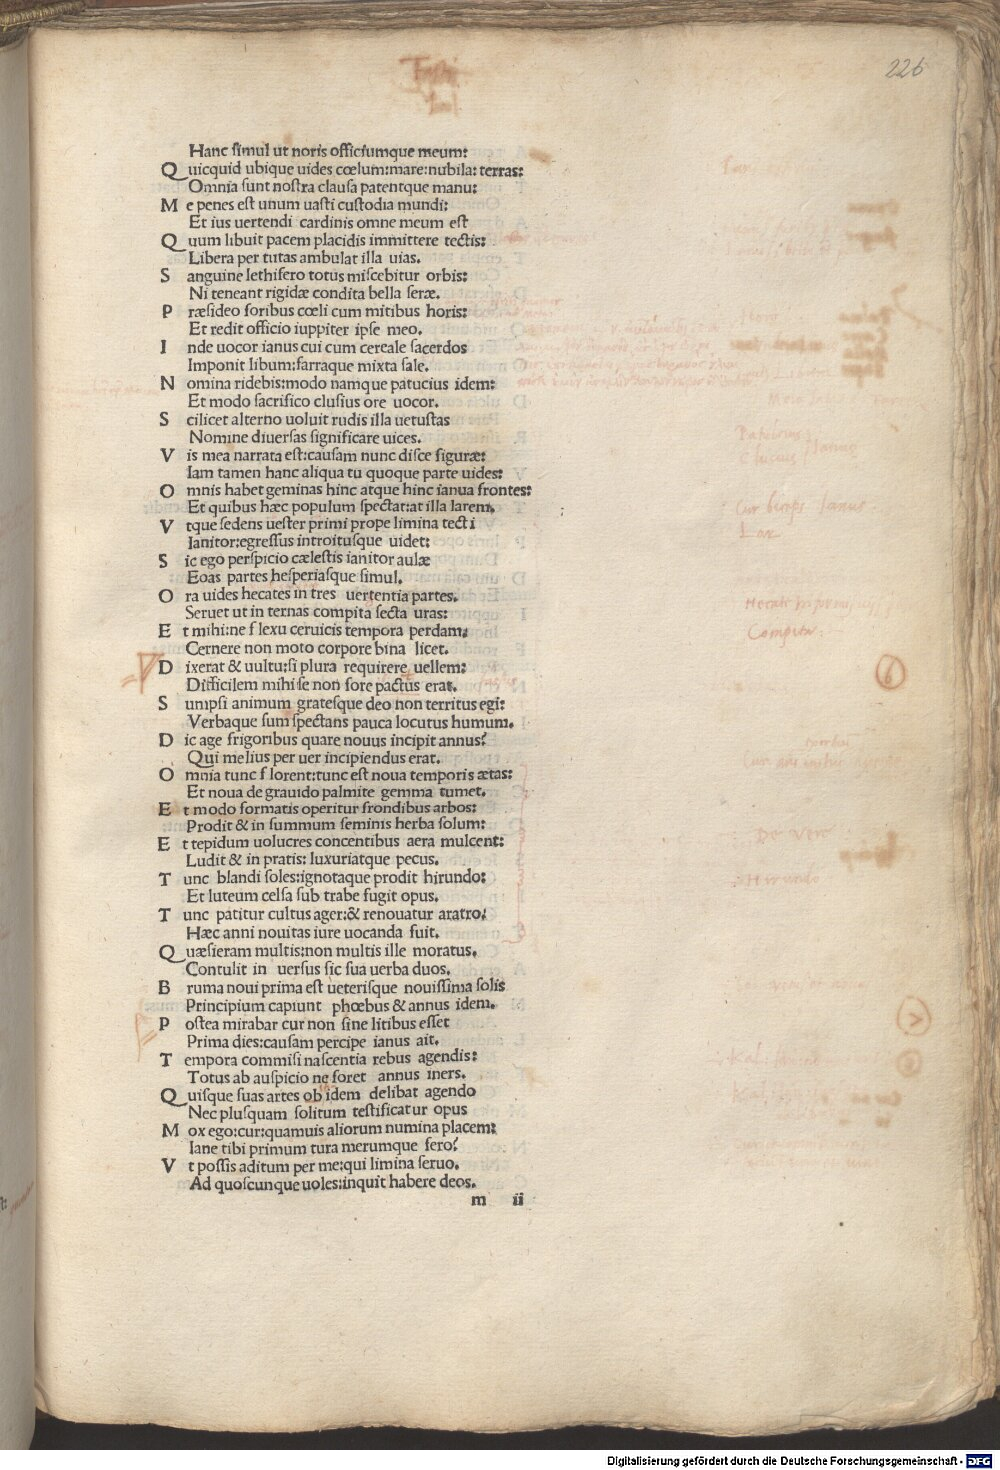 226
Hanc simul ut noris officiumque meum:
Quicquid ubique uides cœlum:mare:nubila: terras:
Omnia sunt nostra clausa patentque manu:
Me penes est unum uasti custodia mundi:
Et ius uertendi cardinis omne meum est
Quum libuit pacem placidis immittere tectis:
Libera per tutas ambulat illa uias.
Sanguine lethifero totus miscebitur orbis:
Ni teneant rigidæ condita bella seræ.
Præsideo foribus cœli cum mitibus horis:
Et redit officio iuppiter ipse meo.
Inde uocor ianus cui cum cereale sacerdos
Imponit libum:farraque mixta sale.
Nomina ridebis:modo namque patucius idem:
Et modo sacrifico clusius ore uocor.
Scilicet alterno uoluit rudis illa uetustas
Nomine diuersas significare uices.
Vis mea narrata est:causam nunc disce figuræ:
Iam tamen hanc aliqua tu quoque parte uides:
Omnis habet geminas hinc atque hinc ianua frontes:
Et quibus hæc populum spectat:at illa larem.
Vtque sedens uester primi prope limina tecti
Ianitor:egressus introitusque uidet:
Sic ego perspicio cælestis ianitor aulæ
Eoas partes hesperiasque simul.
Ora uides hecates in tres uertentia partes.
Seruet ut in ternas compita secta uras:
Et mihi:ne flexu ceruicis tempora perdam.
Cernere non moto corpore bina licet.
Dixerat & uultu:si plura requirere uellem:
Difficilem mihi se non fore pactus erat.
Sumpsi animum gratesque deo non territus egi:
Verbaque sum spectans pauca locutus humum.
Dic age frigoribus quare nouus incipit annus?
Qui melius per uer incipiendus erat.
Omnia tunc florent:tunc est noua temporis ætas:
Et noua de grauido palmite gemma tumet.
Et modo formatis operitur frondibus arbos:
Prodit & in summum seminis herba solum:
Et tepidum uolucres concentibus aera mulcent:
Ludit & in pratis: luxuriatque pecus.
Tunc blandi soles:ignotaque prodit hirundo:
Et luteum celsa sub trabe fugit opus.
Tunc patitur cultus ager:& renouatur aratro!
Hæc anni nouitas iure uocanda fuit.
Quæsieram multis:non multis ille moratus.
Contulit in uersus sic sua uerba duos.
Bruma noui prima est ueterisque nouissima solis
Principium capiunt phœbus & annus idem.
Postea mirabar cur non sine litibus esset
Prima dies:causam percipe ianus ait.
Tempora commisi nascentia rebus agendis:
Totus ab auspicio ne foret annus iners.
Quisque suas artes ob idem delibat agendo
Nec plusquam solitum testificatur opus
Mox ego:cur:quamuis aliorum numina placem:
Iane tibi primum tura merumque fero?
Vt possis aditum per me:qui limina seruo.
Ad quoscunque uoles:inquit habere deos.
m ii
Ianus
Cur biceps Ianus
Lar
Compita
De Vere
Hirundo
Digitalisierung gefördert durch die Deutsche Forschungsgemeinschaft - DFG